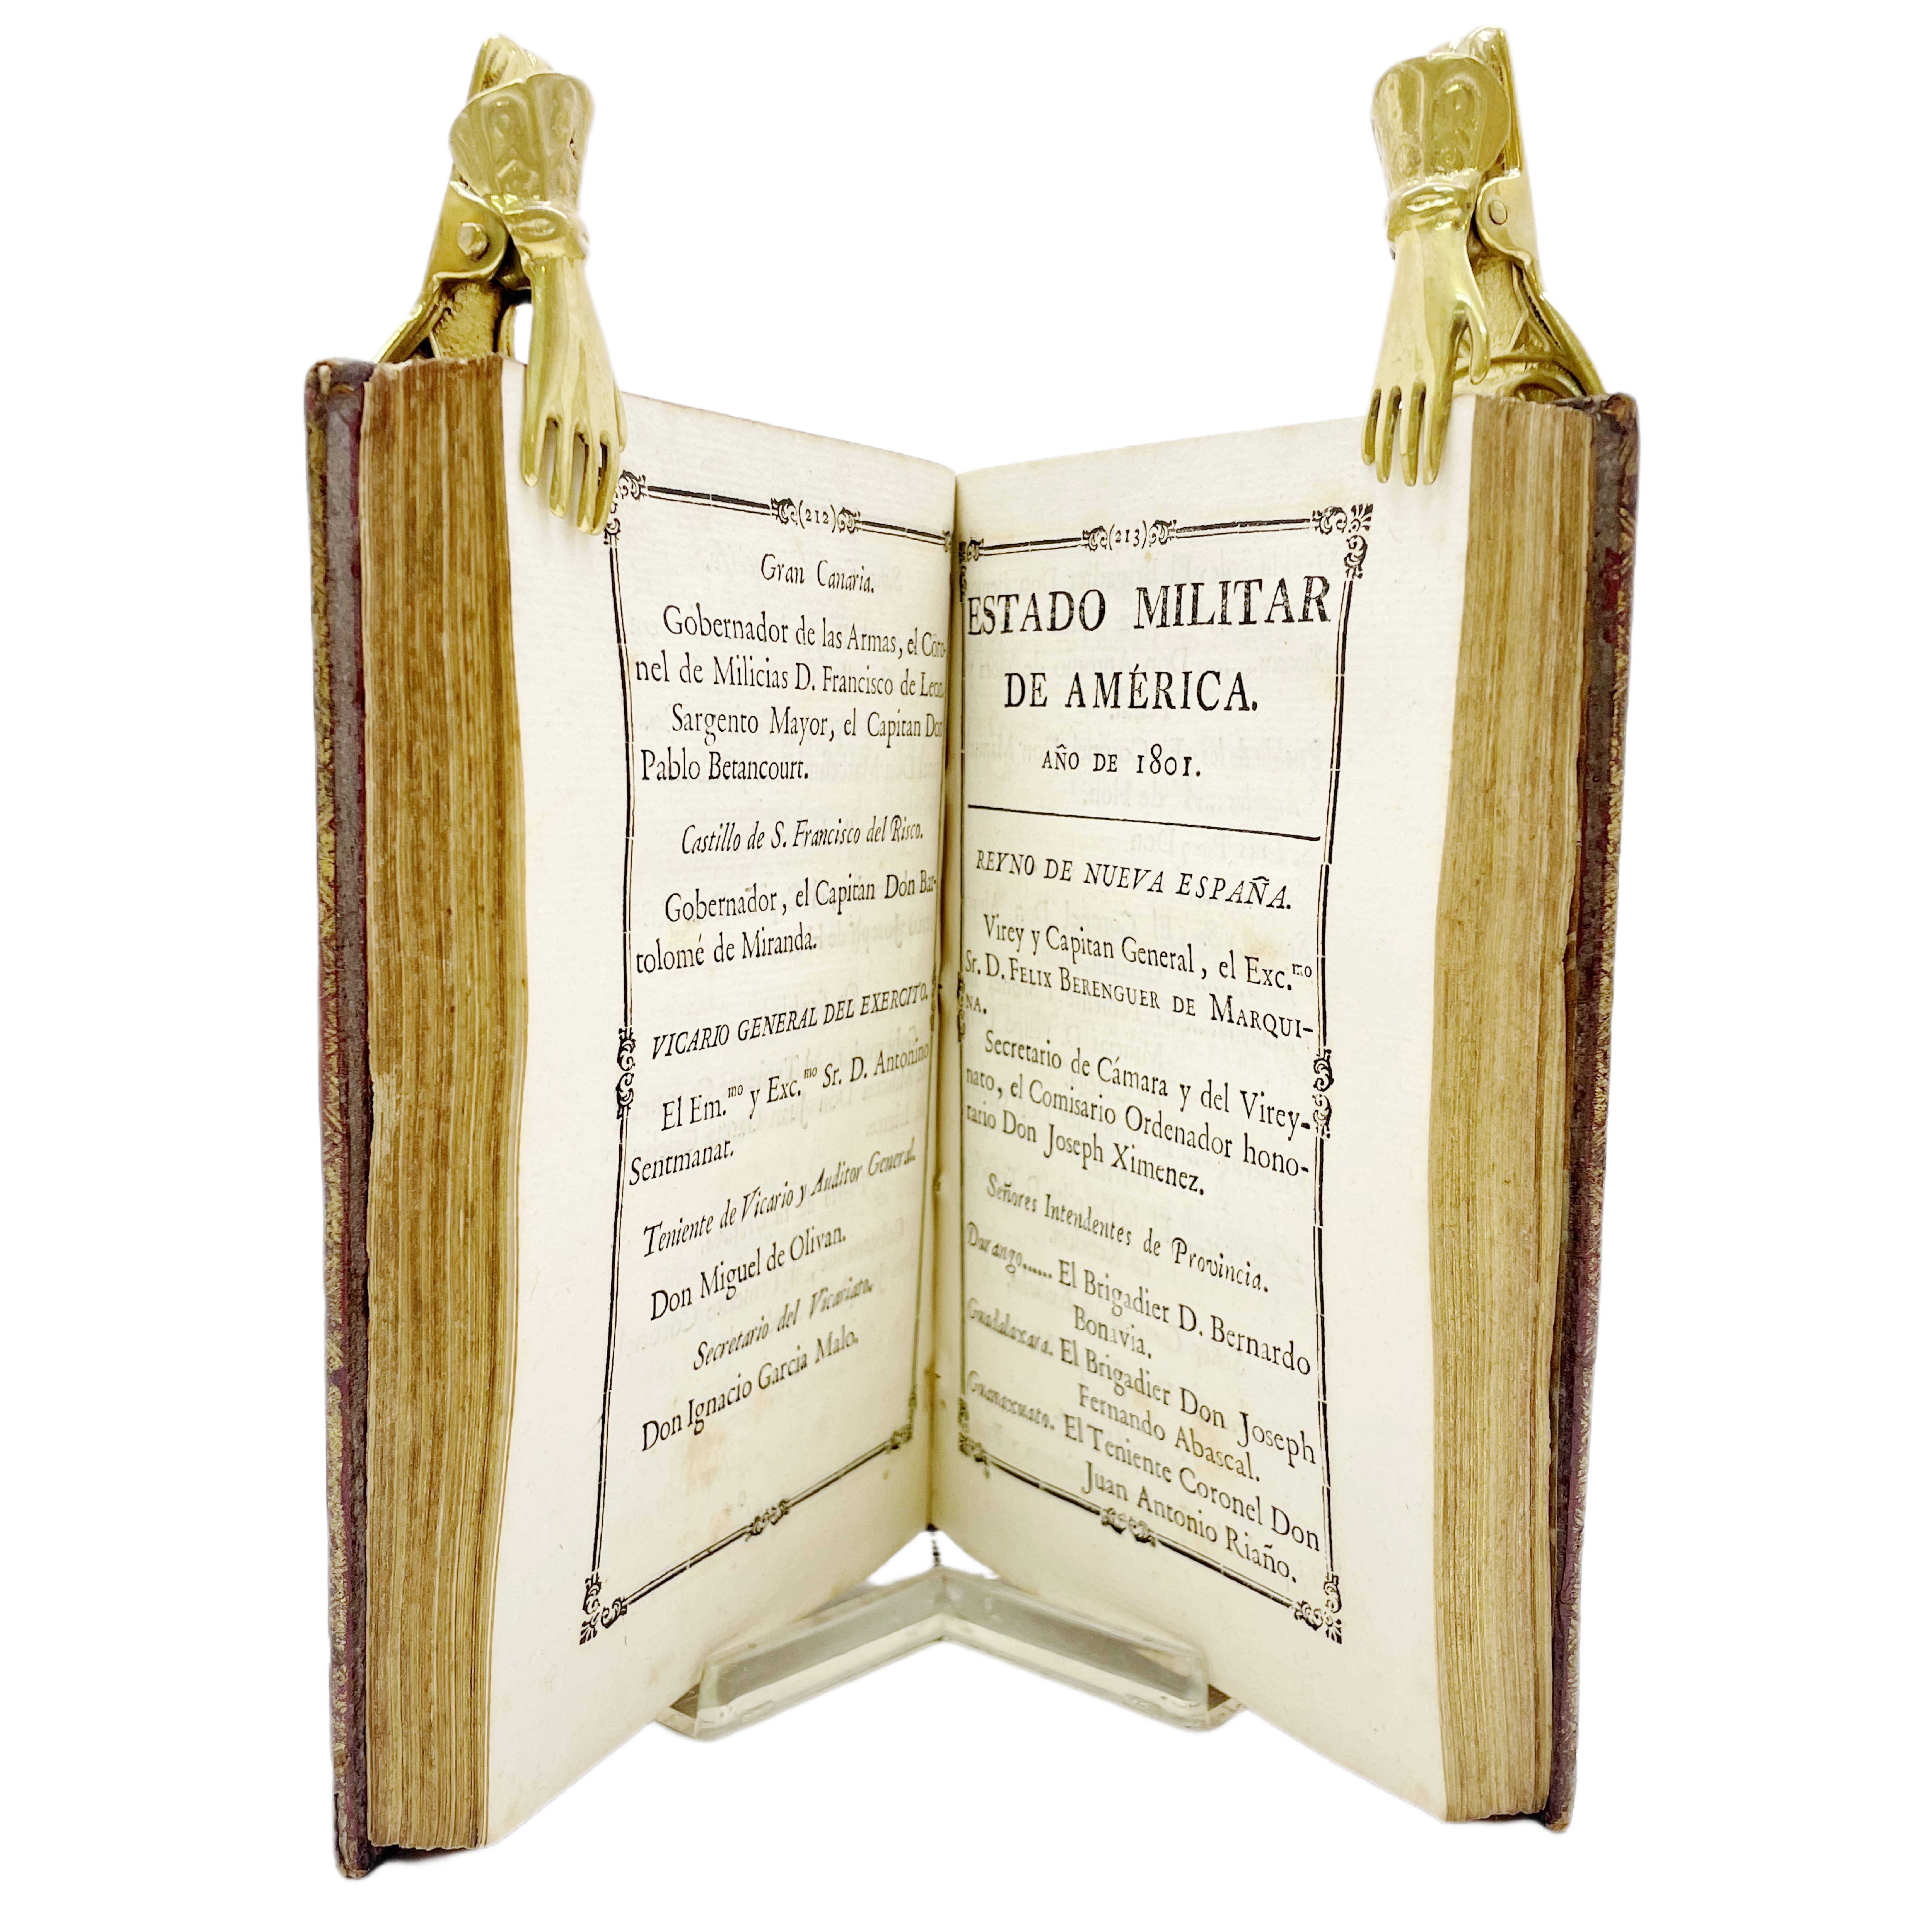 (212)
Gran Canaria.
Gobernador de las Armas, el Coro-
nel de Milicias D. Francisco de Leon.
Sargento Mayor, el Capitan Don
Pablo Betancourt.
Castillo de S. Francisco del Risco.
Gobernador, el Capitan Don Bar-
tolomé de Miranda.
VICARIO GENERAL DEL EXERCITO.
El Em.mo y Exc.mo Sr. D. Antonino
Sentmanat.
Teniente de Vicario y Auditor General.
Don Miguel de Olivan.
Secretario del Vicariato.
Don Ignacio Garcia Malo.
(213)
ESTADO MILITAR
DE AMÉRICA.
AÑO DE 1801.
REYNO DE NUEVA ESPAÑA.
Virey y Capitan General, el Exc.mo
Sr. D. FELIX BERENGUER DE MARQUI-
NA.
Secretario de Cámara y del Virey-
nato, el Comisario Ordenador hono-
rario Don Joseph Ximenez.
Señores Intendentes de Provincia.
Durango...... El Brigadier D. Bernardo
Bonavia.
Guadalaxara. El Brigadier Don Joseph
Fernando Abascal.
Guanaxuato. El Teniente Coronel Don
Juan Antonio Riaño.